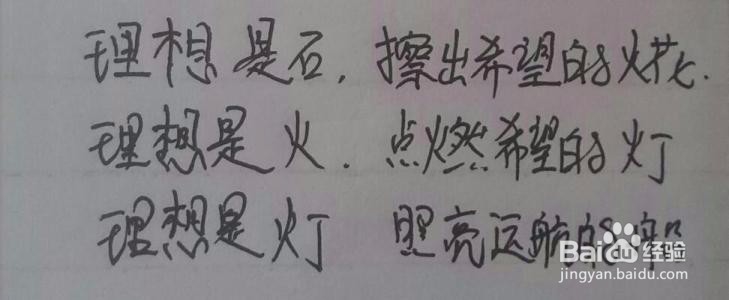 理想是石，擦出希望的火花．
理想是火．点燃希望的灯
理想是灯 照亮远航的船
Baidu 经验
jingyan.baidu.com